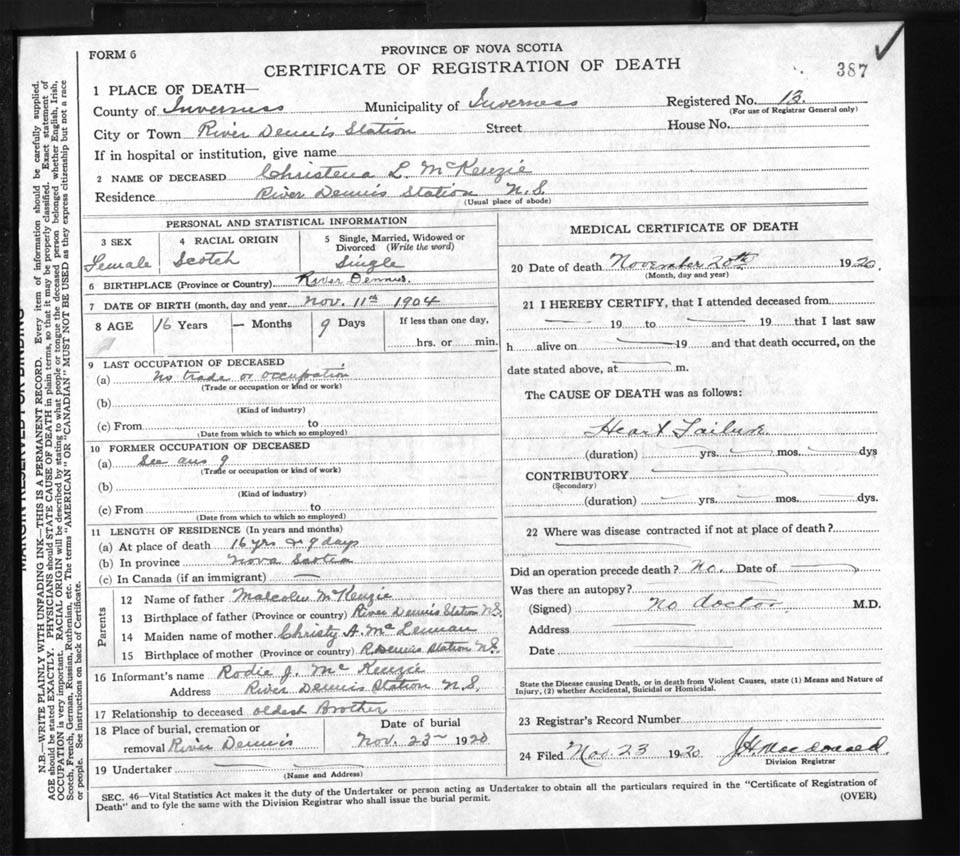 FORM 6
PROVINCE OF NOVA SCOTIA
CERTIFICATE OF REGISTRATION OF DEATH
387
1 PLACE OF DEATH—
County of Inverness Municipality of Inverness Registered No. 13.
(For use of Registrar General only)
City or Town River Dennis Station Street House No.
If in hospital or institution, give name
2 NAME OF DECEASED Christena L. McKenzie
Residence River Dennis Station N.S.
(Usual place of abode)
PERSONAL AND STATISTICAL INFORMATION
3 SEX Female
4 RACIAL ORIGIN Scotch
5 Single, Married, Widowed or Divorced (Write the word) Single
6 BIRTHPLACE (Province or Country) River Dennis.
7 DATE OF BIRTH (month, day and year) Nov. 11th 1904
8 AGE 16 Years — Months 9 Days If less than one day,
hrs. or min.
9 LAST OCCUPATION OF DECEASED
(a) No trade or occupation
(Trade or occupation or kind or work)
(b)
(Kind of industry)
(c) From to
(Date from which to which so employed)
10 FORMER OCCUPATION OF DECEASED
(a) See ans 9
(Trade or occupation or kind of work)
(b)
(Kind of industry)
(c) From to
(Date from which to which so employed)
11 LENGTH OF RESIDENCE (In years and months)
(a) At place of death 16 yrs & 9 days
(b) In province Nova Scotia
(c) In Canada (if an immigrant) —
Parents
12 Name of father Malcolm McKenzie
13 Birthplace of father (Province or country) River Dennis Station N.S.
14 Maiden name of mother Christy A. McLennan
15 Birthplace of mother (Province or country) R. Dennis Station N.S.
16 Informant's name Rodie J. McKenzie
Address River Dennis Station N.S.
17 Relationship to deceased oldest Brother
18 Place of burial, cremation or removal River Dennis
Date of burial Nov. 23 - 1920
19 Undertaker —
(Name and Address)
MEDICAL CERTIFICATE OF DEATH
20 Date of death November 20th 1920.
(Month, day and year)
21 I HEREBY CERTIFY, that I attended deceased from
— 19 to — 19 that I last saw
h alive on — 19 and that death occurred, on the
date stated above, at — m.
The CAUSE OF DEATH was as follows:
Heart Failure
(duration) — yrs. — mos. — dys
CONTRIBUTORY —
(Secondary)
(duration) — yrs. — mos. — dys.
22 Where was disease contracted if not at place of death?
—
Did an operation precede death? No. Date of —
Was there an autopsy?
(Signed) No doctor M.D.
Address —
Date —
State the Disease causing Death, or in death from Violent Causes, state (1) Means and Nature of
Injury, (2) whether Accidental, Suicidal or Homicidal.
23 Registrar's Record Number
24 Filed Nov. 23 1920 J H Macdonald.
Division Registrar
SEC. 46—Vital Statistics Act makes it the duty of the Undertaker or person acting as Undertaker to obtain all the particulars required in the "Certificate of Registration of
Death" and to fyle the same with the Division Registrar who shall issue the burial permit.
(OVER)
MARGIN RESERVED FOR BINDING
N.B.—WRITE PLAINLY WITH UNFADING INK—THIS IS A PERMANENT RECORD. Every item of information should be carefully supplied.
AGE should be stated EXACTLY. PHYSICIANS should STATE CAUSE OF DEATH in plain terms, so that it may be properly classified. Exact statement of
OCCUPATION is very important. RACIAL ORIGIN will be described by stating to what people or tongue the deceased person belonged whether English, Irish,
Scotch, French, German, Russian, Ruthenian, etc. The terms "AMERICAN" OR "CANADIAN" MUST NOT BE USED as they express citizenship but not a race
or people. See instructions on back of Certificate.